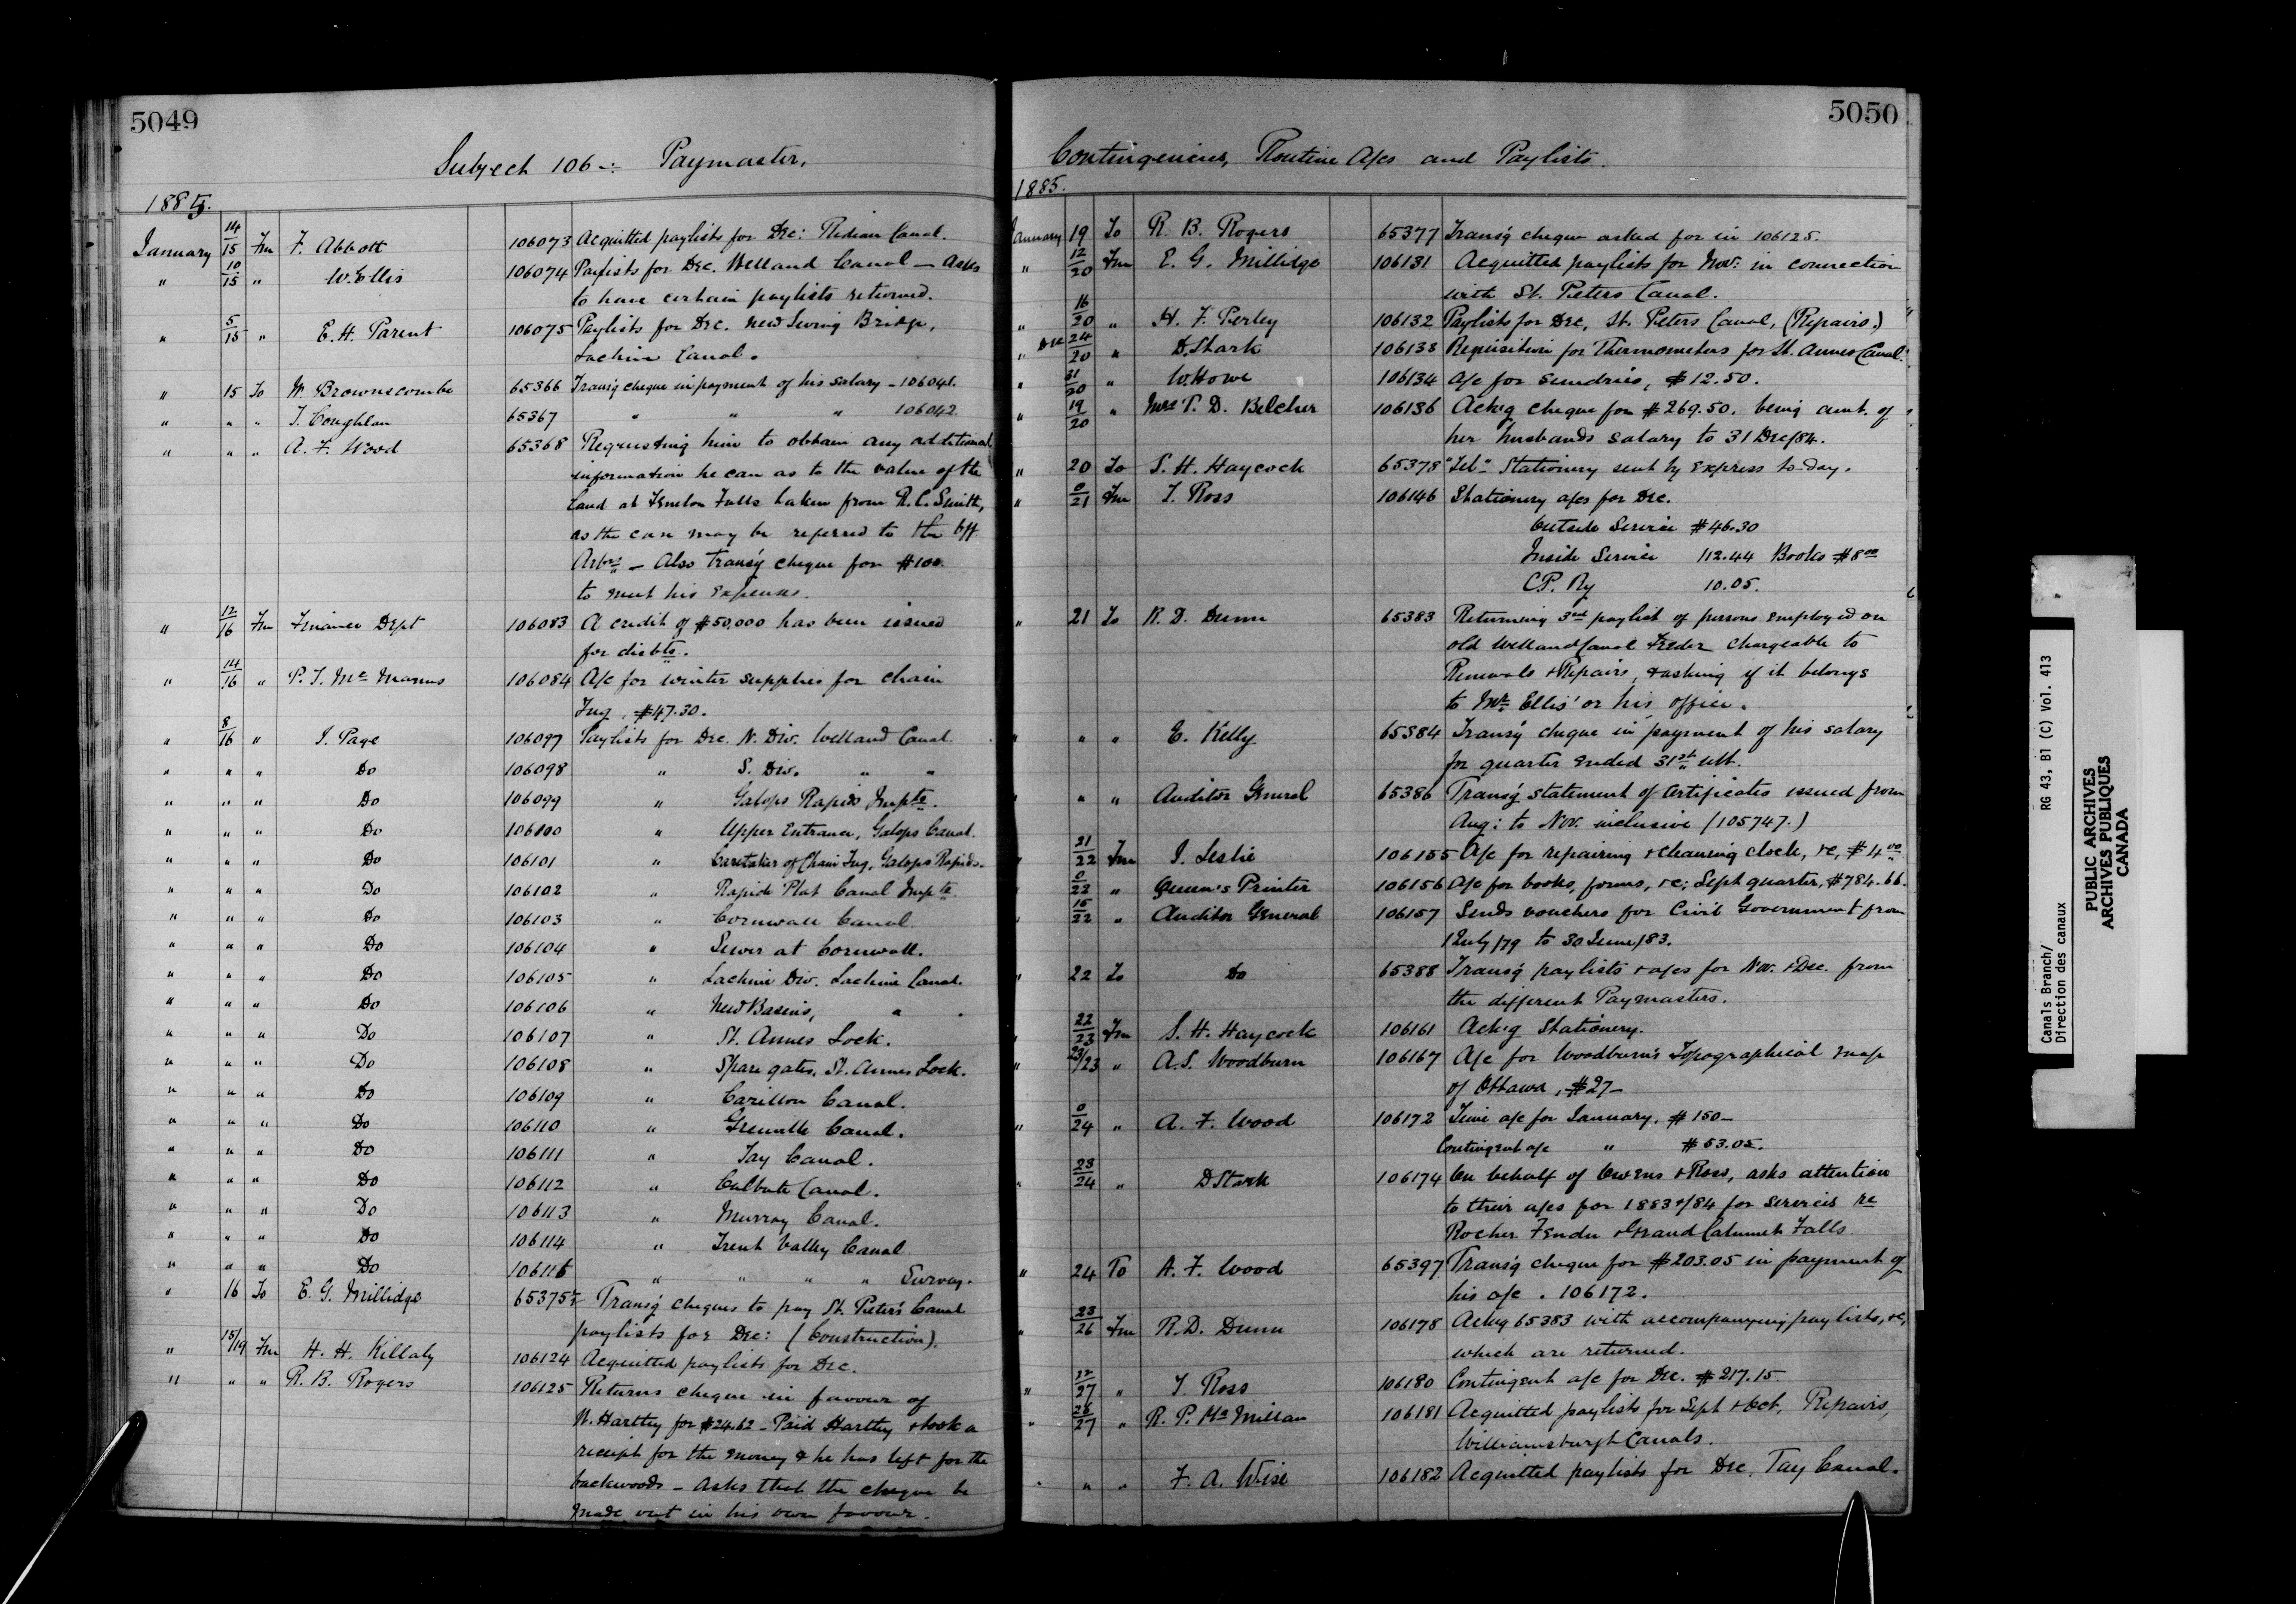 5049
Subject 106 -: Paymaster,
1885.
January 14/15 Fm F. Abbott 106073 Acquitted paylists for Dec: Ridian Canal.
" 10/15 " W. Ellis 106074 Paylists for Dec. Welland Canal - Asks
to have certain paylists returned.
" 5/15 " E. H. Parent 106075 Paylists for Dec. New Swing Bridge,
Lachine Canal.
" 15 To W. Brownscombe 65366 Transg cheque in payment of his salary - 106041.
" " " T. Coughlan 65367 " " " 106042
" " " A. F. Wood 65368 Requesting him to obtain any additional
information he can as to the value of the
land at Fenelon Falls taken from R. C. Smith,
as the case may be referred to the Off
Arbrs - Also Transg cheque for $100.
to meet his expenses.
" 12/16 Fm Finance Dept 106083 A credit of $50,000 has been issued
for disbts.
" 14/16 " P. J. Mc Manus 106084 A/c for winter supplies for chain
Tug, $47.30.
" 8/16 " J. Page 106097 Paylists for Dec. N. Div. Welland Canal
" " " Do 106098 " S. Div. " "
" " " Do 106099 " Galops Rapids Impts.
" " " Do 106100 " Upper Entrance, Galops Canal.
" " " Do 106101 " Caretaker of Chain Tug, Galops Rapids.
" " " Do 106102 " Rapide Plat Canal Impts
" " " Do 106103 " Cornwall Canal
" " " Do 106104 " Sewer at Cornwall.
" " " Do 106105 " Lachine Div. Lachine Canal.
" " " Do 106106 " New Basins, " "
" " " Do 106107 " St. Annes Lock.
" " " Do 106108 " Spare gates, St. Annes Lock.
" " " Do 106109 " Carillon Canal.
" " " Do 106110 " Grenville Canal.
" " " Do 106111 " Tay Canal.
" " " Do 106112 " Culbute Canal.
" " " Do 106113 " Murray Canal.
" " " Do 106114 " Trent Valley Canal
" " " Do 106115 " " " " Survey.
" 16 To E. G. Millidge 65375 Transg cheques to pay St. Peter's Canal
paylists for Dec: (Construction).
" 15/19 Fm H. H. Killaly 106124 Acquitted paylists for Dec.
" " " R. B. Rogers 106125 Returns cheque in favour of
W. Hartley for $24.62 - Paid Hartley & took a
receipt for the money & he has left for the
backwoods - Asks that the cheque be
made out in his own favour.
5050
Contingencies, Routine A/cs and Paylists.
1885.
January 19 To R. B. Rogers 65377 Transg cheque asked for in 106125.
" 12/20 Fm E. G. Millidge 106131 Acquitted paylists for Nov: in connection
with St. Peters Canal.
" 16/20 " H. F. Perley 106132 Paylists for Dec, St. Peters Canal, (Repairs.)
" Dec 24/20 " D. Stark 106133 Requisition for Thermometers for St. Annes Canal.
" 31/20 " W. Howe 106134 A/c for sundries, $12.50.
" 19/20 " Mrs T. D. Belcher 106136 Ackg cheque for $269.50. being amt. of
her husbands salary to 31 Dec/84.
" 20 To S. H. Haycock 65378 "Tel" Stationery sent by Express to-day.
" 0/21 Fm T. Ross 106146 Stationery a/cs for Dec.
Outside Service $46.30
Inside Service 112.44 Books $8 00
C.P. Ry 10.05.
" 21 To R. D. Dunn 65383 Returning 3rd paylist of persons employed on
old Welland Canal Feeder chargeable to
Renewals & Repairs, & asking if it belongs
to Mr. Ellis' or his office.
" " " E. Kelly 65384 Transg cheque in payment of his salary
for quarter ended 31st ult.
" " " Auditor General 65386 Transg statement of Certificates issued from
Aug: to Nov. inclusive (105747.)
" 21/22 Fm J. Leslie 106155 A/c for repairing & cleaning clock, &c, $4 00
" 0/22 " Queen's Printer 106156 A/c for books, forms, &c; Sept quarter, $784.66.
" 15/22 " Auditor General 106157 Sends vouchers for Civil Government from
1 July/79 to 30 June/83.
" 22 To Do 65388 Transg paylists & a/cs for Nov. & Dec. from
the different Paymasters.
" 22/23 Fm S. H. Haycock 106161 Ackg Stationery.
" 23/23 " A. S. Woodburn 106167 A/c for Woodburn's Topographical map
of Ottawa, $27 -
" 0/24 " A. F. Wood 106172 Time a/c for January, $150 -
Contingent a/c " $53.05.
" 23/24 " D Stark 106174 On behalf of Owens & Ross, asks attention
to their a/cs for 1883 & /84 for services re
Rocher Fendu & Grand Calumet Falls
" 24 To A. F. Wood 65397 Transg cheque for $203.05 in payment of
his a/c. 106172.
" 23/26 Fm R. D. Dunn 106178 Ackg 65383 with accompanying paylists, &c,
which are returned.
" 12/27 " T. Ross 106180 Contingent a/c for Dec. $217.15
" 26/27 " R. P. McMillan 106181 Acquitted paylists for Sept & Oct. Repairs,
Williamsburgh Canals.
" " " F. A. Wise 106182 Acquitted paylists for Dec, Tay Canal.
Canals Branch/ RG 43, B1 (C) Vol. 413
Direction des canaux
PUBLIC ARCHIVES
ARCHIVES PUBLIQUES
CANADA